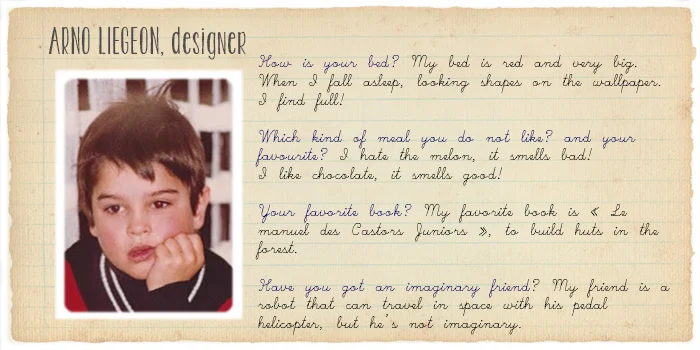 ARNO LIEGEON, designer
How is your bed? My bed is red and very big.
When I fall asleep, looking shapes on the wallpaper.
I find full!
Which kind of meal you do not like? and your
favourite? I hate the melon, it smells bad!
I like chocolate, it smells good!
Your favorite book? My favorite book is « Le
manuel des Castors Juniors », to build huts in the
forest.
Have you got an imaginary friend? My friend is a
robot that can travel in space with his pedal
helicopter, but he's not imaginary.